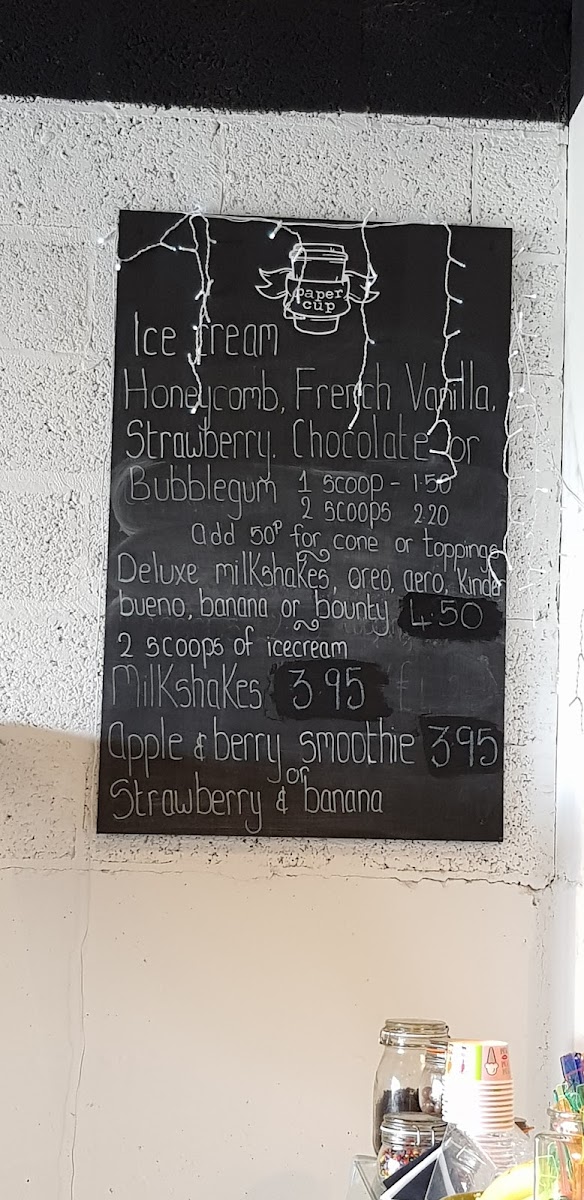 paper
cup
Ice cream
Honeycomb, French Vanilla,
Strawberry. Chocolate or
Bubblegum 1 scoop - 1.50
2 scoops 2.20
add 50P for cone or toppings
Deluxe milkshakes, oreo, aero, kinder
bueno, banana or bounty 4.50
2 scoops of icecream
Milkshakes 3.95
Apple & berry smoothie 3.95
or
Strawberry & banana